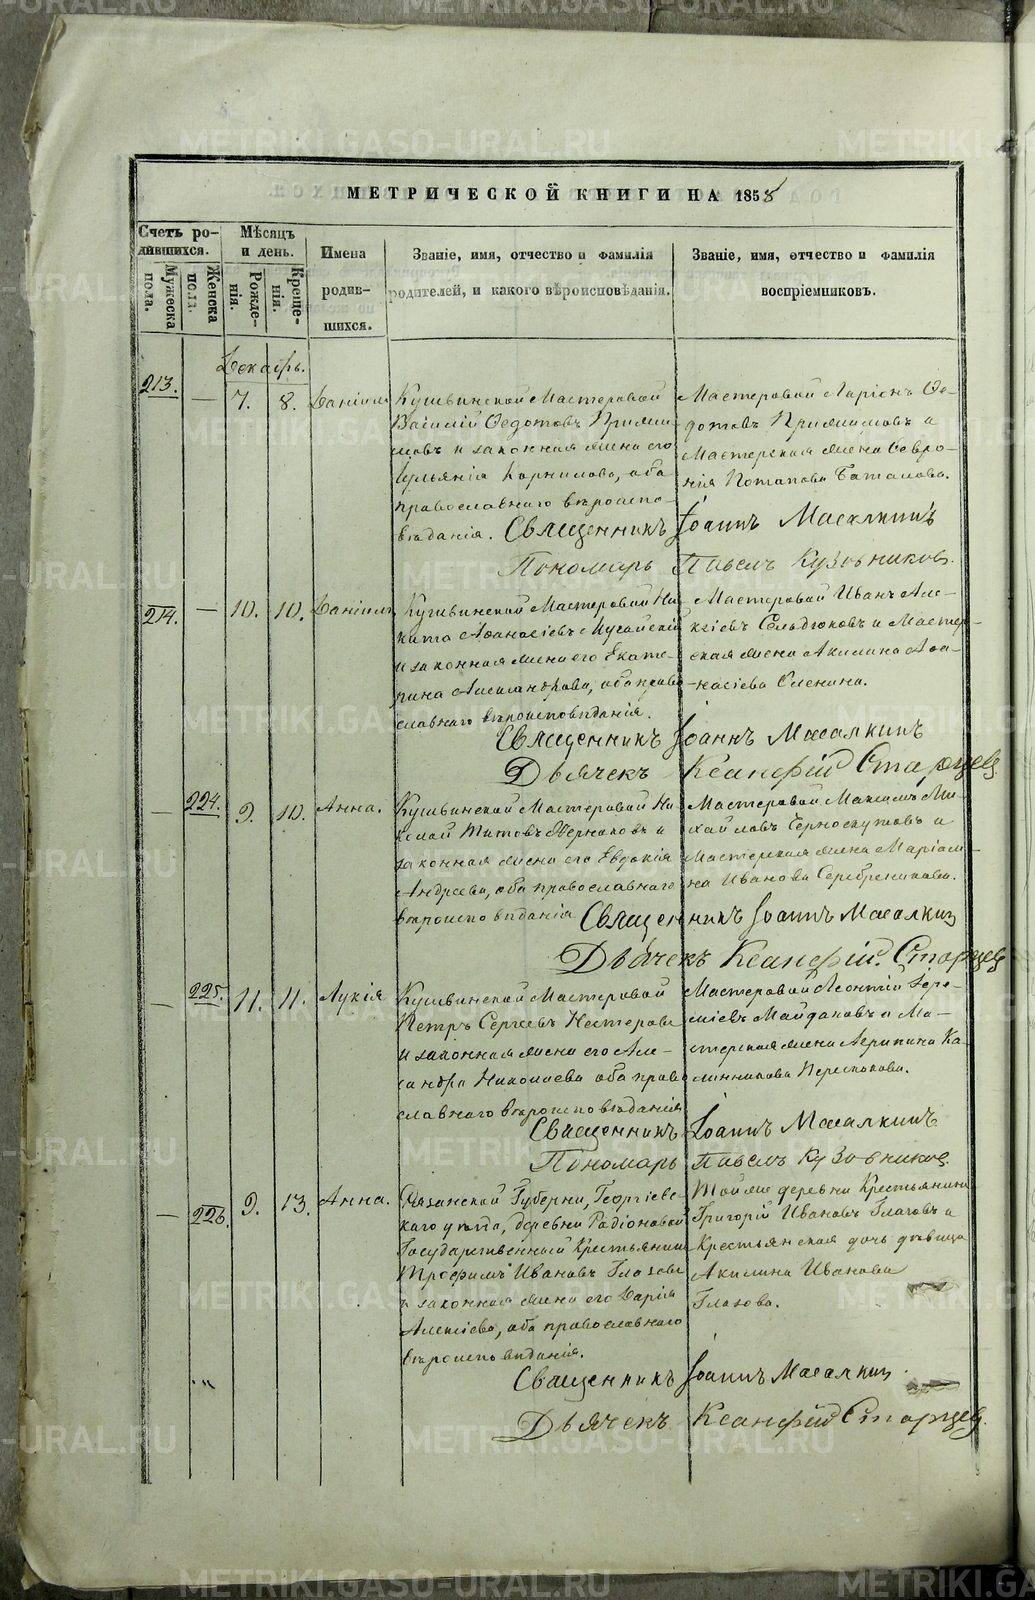 МЕТРИЧЕСКОЙ КНИГИ НА 1858
Счетъ ро-
дившихся.
Мужеска
пола.
Женска
пола.
Мѣсяцъ
и день.
Рожде-
нія.
Креще-
нія.
Имена
родив-
шихся.
Званіе, имя, отчество и фамилія
родителей, и какого вѣроисповѣданія.
Званіе, имя, отчество и фамилія
воспріемниковъ.
Декабрь.
213. — 7. 8. Даніилъ
Кушвинской Мастеровой
Василій Ѳедотовъ
и законная жена его
Іульянія Корнилова, оба
православнаго вѣроиспо-
вѣданія.
Мастеровой Ларіонъ Ѳе-
дотовъ и
Мастерская жена Февро-
нія Потапова Баталова.
Священникъ Іоаннъ Масалкинъ
Пономарь Павелъ Кузовниковъ.
214. — 10. 10. Даніилъ
Кушвинской Мастеровой Ни-
кита Аѳанасіевъ
и законная жена его Екате-
рина Александрова, оба право-
славнаго вѣроисповѣданія.
Мастеровой Иванъ Але-
ксіевъ и Мастер-
ская жена Акилина Аѳа-
насіева Оленина.
Священникъ Іоаннъ Масалкинъ
Дьячекъ Ксанфій Старцев
— 224. 9. 10. Анна.
Кушвинской Мастеровой Ни-
колай Титовъ и
законная жена его Евдокія
Андреева, оба православнаго
вѣроисповѣданія
Мастеровой Максимъ Ми-
хайловъ Черноскутовъ и
Мастерская жена Маріам-
на Иванова Серебреникова.
Священникъ Іоаннъ Масалкин
Дьячекъ Ксанфій Старцев
— 225. 11. 11. Лукія
Кушвинской Мастеровой
Петръ Сергѣевъ Нестеровъ
и законная жена его Але-
ксандра Николаева оба право
славнаго вѣроисповѣданія
Мастеровой Леонтій Ере-
міевъ Майдановъ и Ма-
стерская жена Агрипина Ка-
линникова
Священникъ Іоаннъ Масалкинъ
Пономарь Павелъ Кузовников
— 226. 9. 13. Анна.
Рязанской Губерни,
каго уѣзда, деревни Радіоновой
Государственный Крестьянинъ
Трофимъ Ивановъ Глазовъ
и законная жена его Дарія
Алексіева, оба православнаго
вѣроисповѣданія.
Той же деревни Крестьянинъ
Григорій Ивановъ Глазовъ и
Крестьянская дочь дѣвица
Акилина Иванова
Глазова.
Священникъ Іоаннъ Масалкин
Дьячекъ Ксанфій Старцев.
METRIKI.GASO-URAL.RU